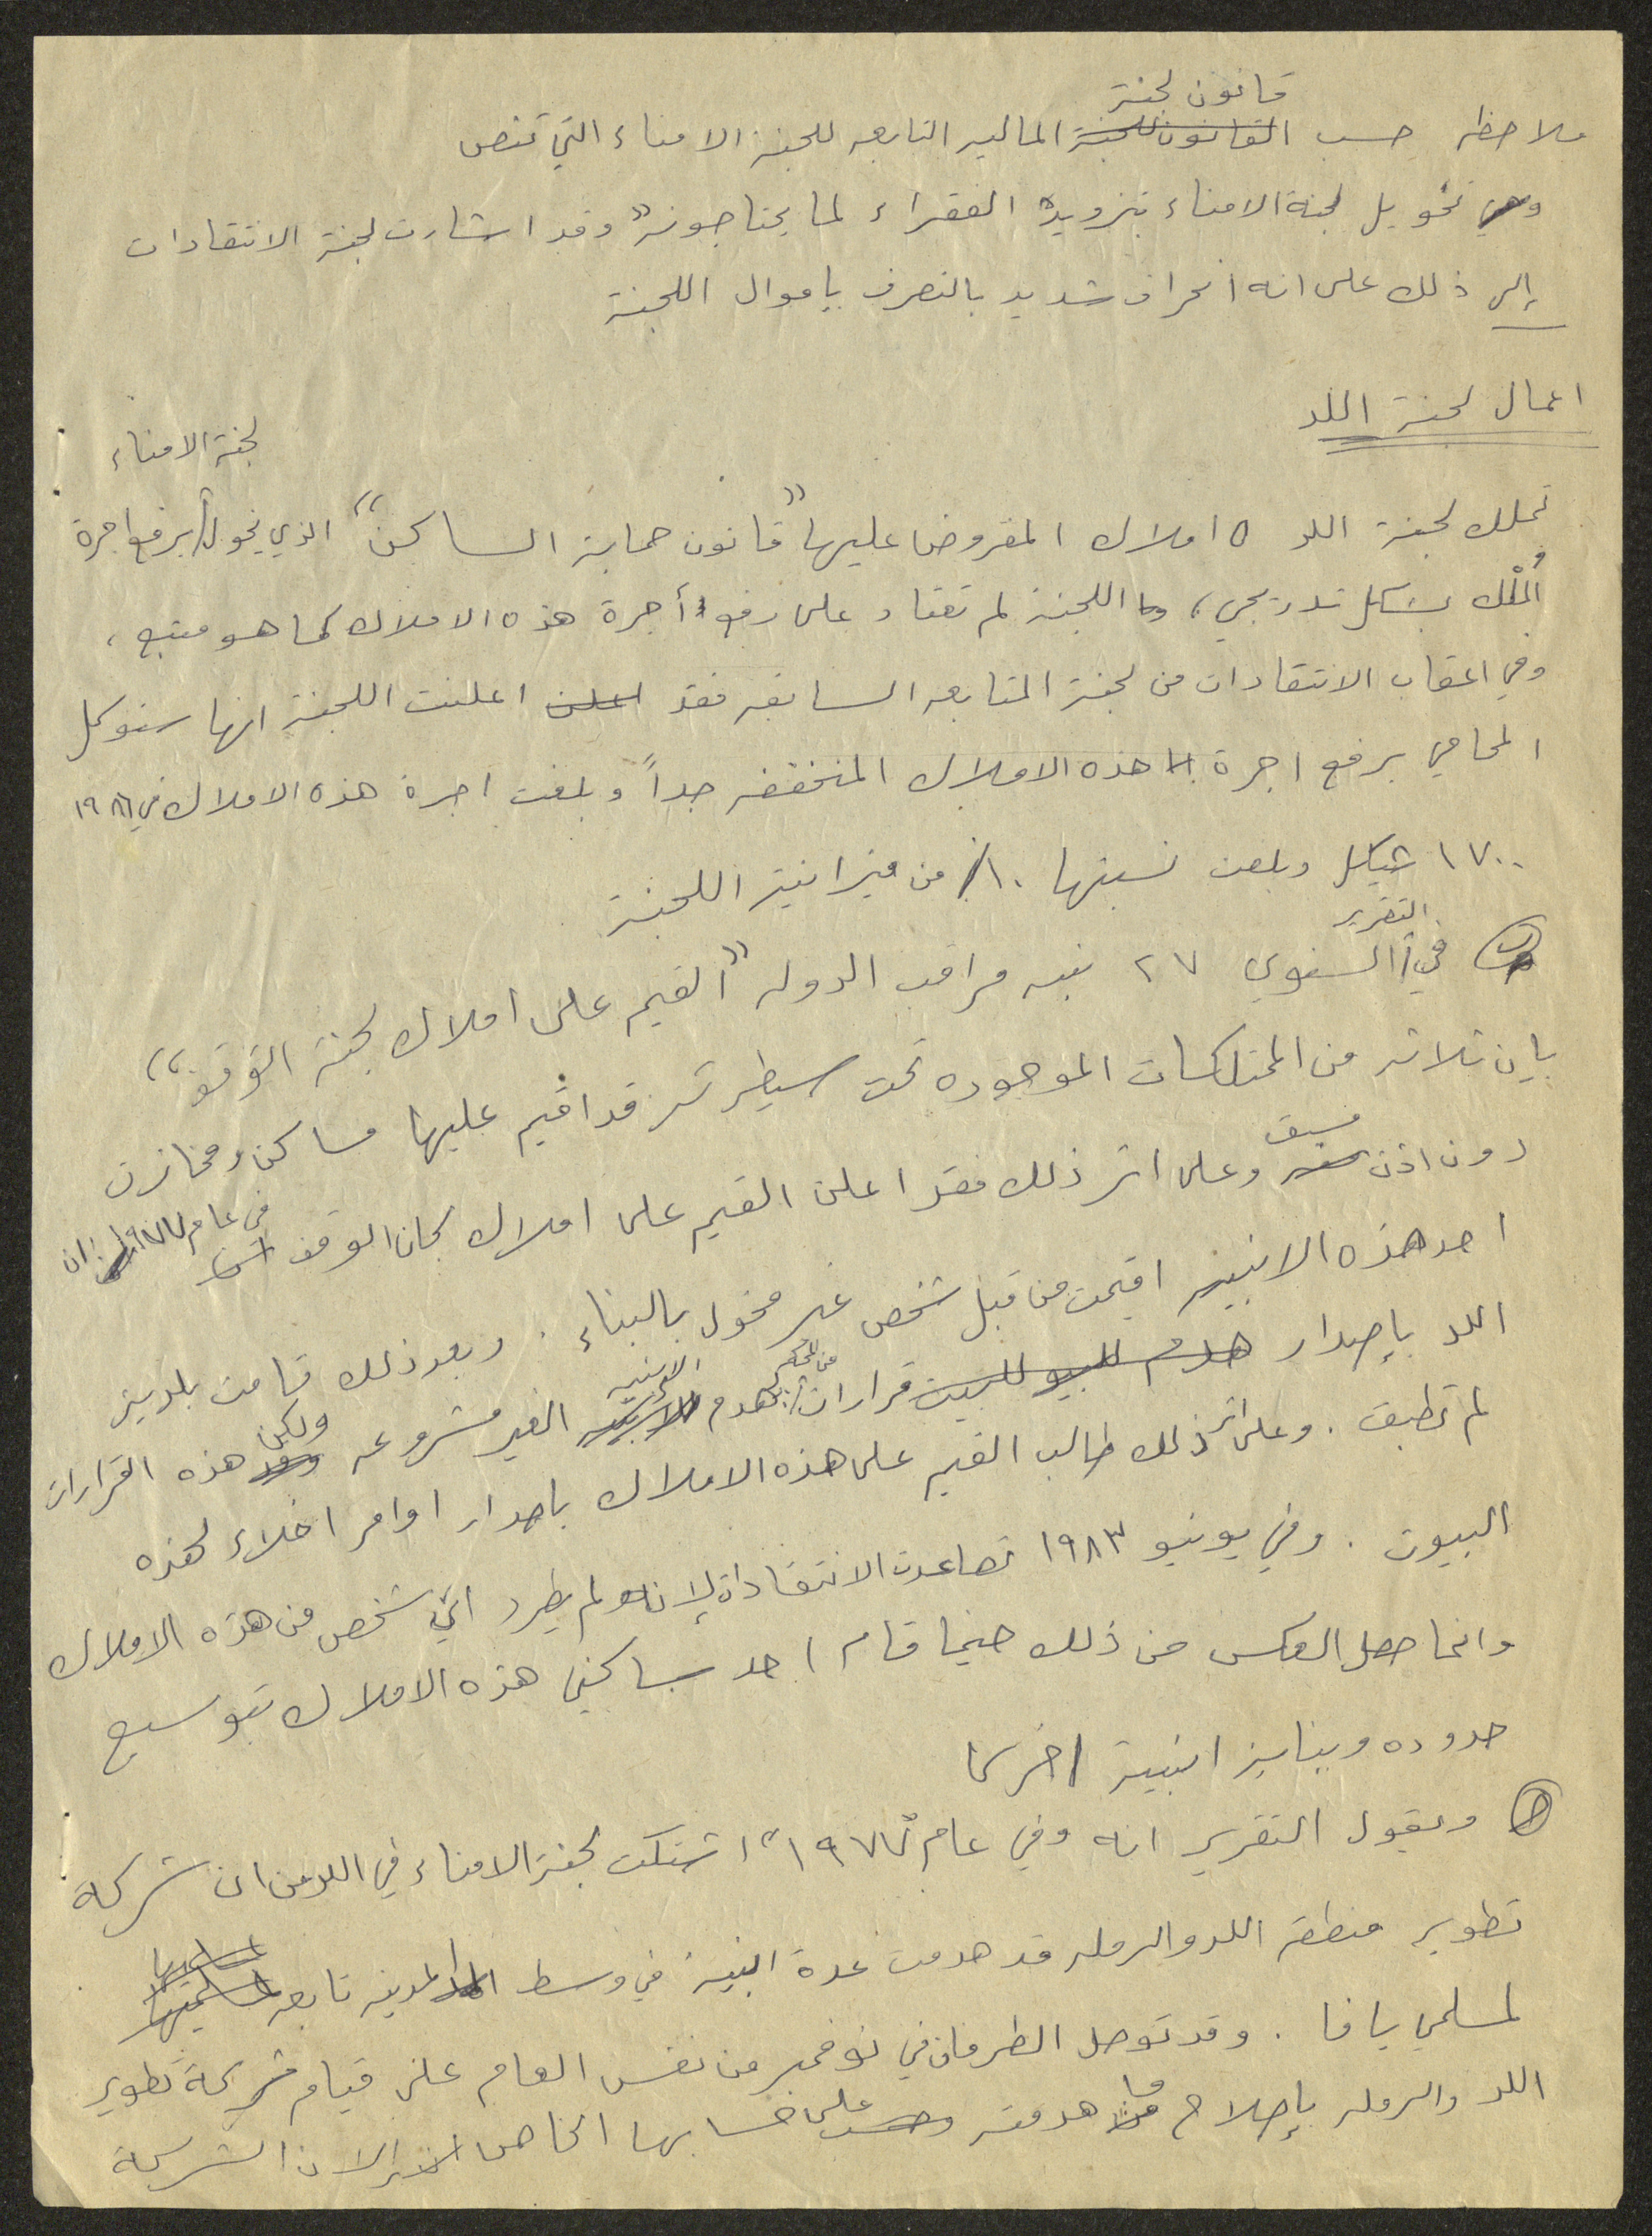 قانون لجنة
ملاحظه حسب القانون للجنة الماليه التابعه للجنة الامناء التي تنص
وهي تخويل لجنة الامناء بتزويد الفقراء لما يحتاجونه" وقد اشارت لجنة الانتقادات
إلى ذلك على انه انحراف شديد بالتصرف باموال اللجنة
اعمال لجنة اللد
لجنة الامناء
تملك لجنة اللد ٥ املاك المفروض عليها "قانون حماية الساكن" الذي يخول برفع اجرة
المُلْك بشكل تدريجي، اللجنة لم تعتاد على رفع أجرة هذه الاملاك كما هو متبع،
وفي اعقاب الانتقادات من لجنة المتابعه السابقه فقد اعلن اعلنت اللجنة انها ستوكل
المحامي برفع اجرة هذه الاملاك المنخفضه جداً وبلغت اجرة هذه الاملاك في ١٩٨٦
١٧٠٠ شيكل وبلغت نسبتها ١٠٪ من ميزانية اللجنة
التقرير
في السنوي ٢٧ نبه مراقب الدوله "القيم على املاك لجنة الوقف"
بإن ثلاثه من الممتلكات الموجوده تحت سيطرته قد اقيم عليها مساكن ومخازن
مسبق
دون اذن وعلى اثر ذلك فقد اعلن القيم على املاك لجان الوقف في عام ١٩٧٧ ان
احد هذه الابنيه اقيمت من قبل شخص غير مخول بالبناء. وبعد ذلك قامت بلدية
اللد بإصدار هدم للبيت قرارات من المحكمه بهدم الابنيه الغير مشروعه ولكن هذه القرارات
لم تطبق. وعلى اثر ذلك طالب القيم على هذه الاملاك باصدار اوامر اخلاء لهذه
البيوت. وفي يونيو ١٩٨٣ تصاعدت الانتقادات لإنه لم يطرد ايّ شخص من هذه الاملاك
وانما حصل العكس من ذلك حينما قام احد ساكني هذه الاملاك بتوسيع
حدوده وبناية ابنية اخرى
ويقول التقرير انه وفي عام "١٩٧٧" اشتكت لجنة الامناء في اللد من ان شركة
تطوير منطقة اللد والرمله قد هدمت عدة ابنية في وسط المدينه تابعه
لمسلمي يافا. وقد توصل الطرفان في نوفمبر من نفس العام على قيام شركة تطوير
اللد والرمله بإصلاح ما هدمته على حسابها الخاص الا ان الشركة